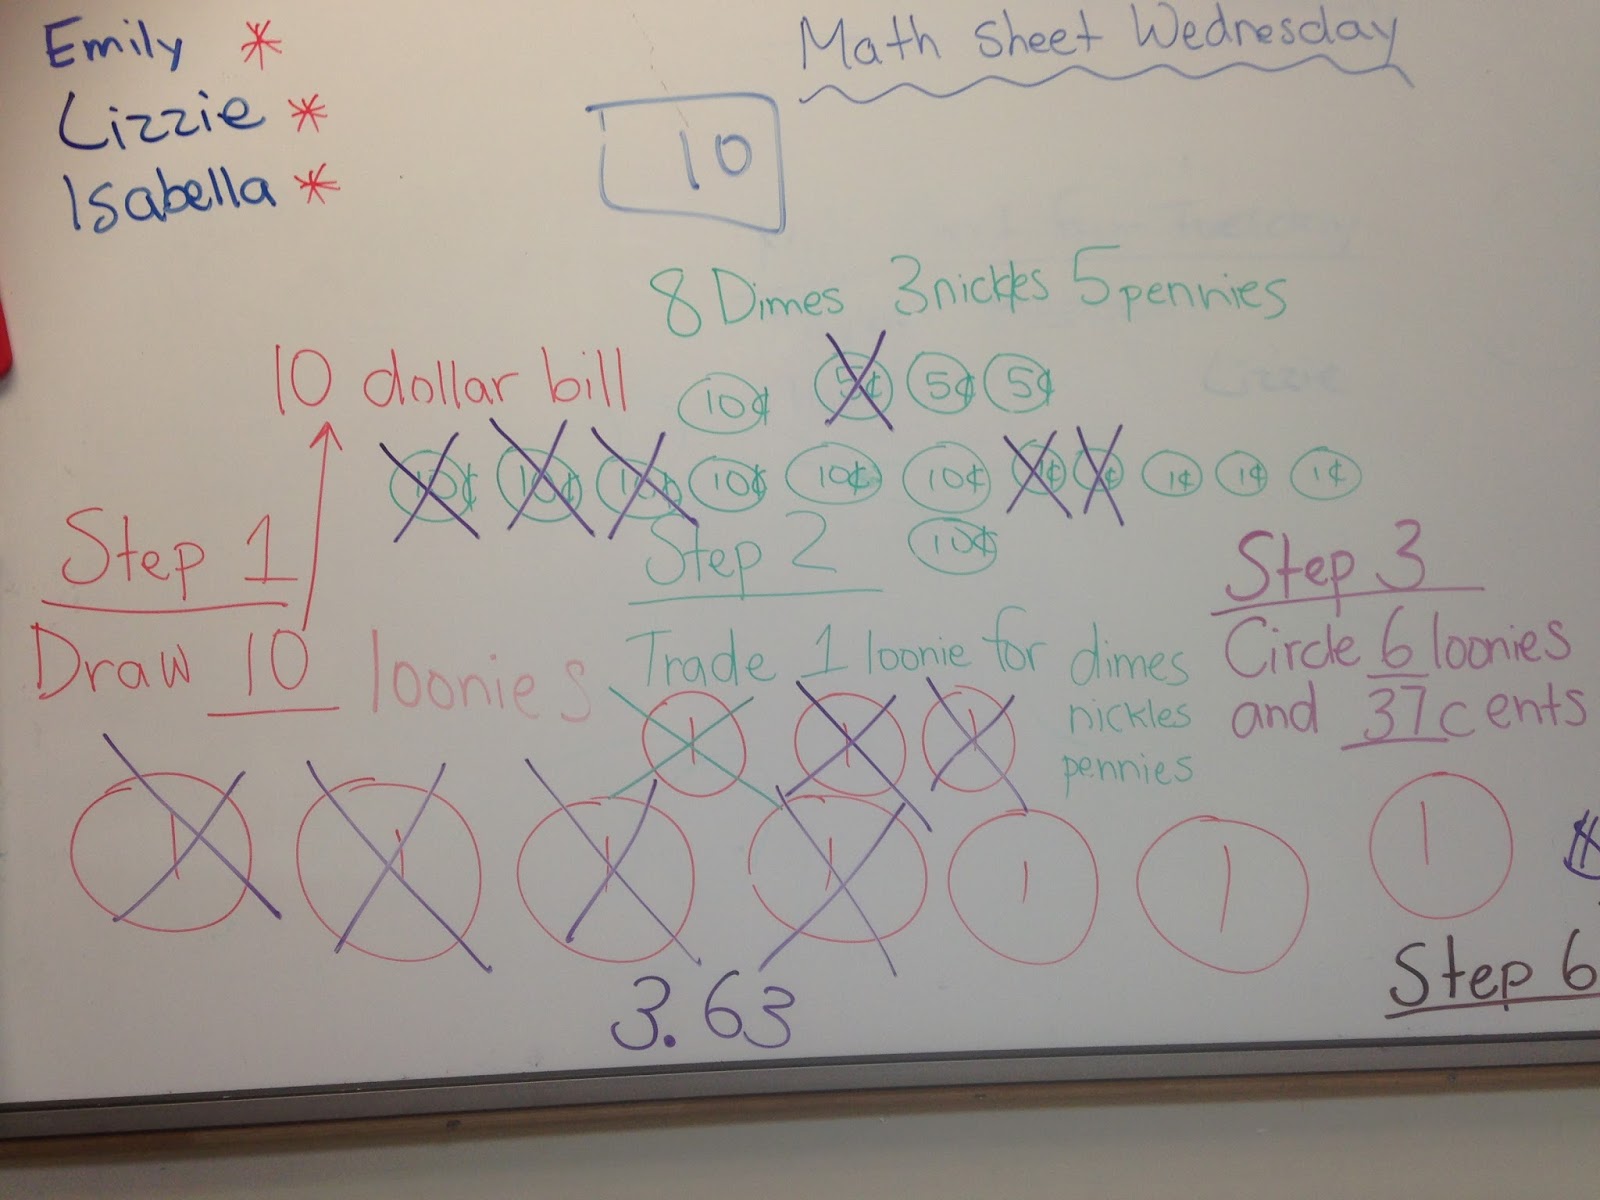 Emily *
Lizzie *
Isabella *
Math Sheet Wednesday
10
8 Dimes 3 nickles 5 pennies
10 dollar bill
10¢ 5¢ 5¢ 5¢
10¢ 10¢ 10¢ 10¢ 10¢ 10¢ 1¢ 1¢ 1¢ 1¢ 1¢
10¢
Step 1
Draw 10 loonies
Step 2
Trade 1 loonie for dimes
nickles
pennies
Step 3
Circle 6 loonies
and 37 cents
1 1 1
1 1 1 1 1 1 1
3.63
Step 6
Tuesday
Lizzie